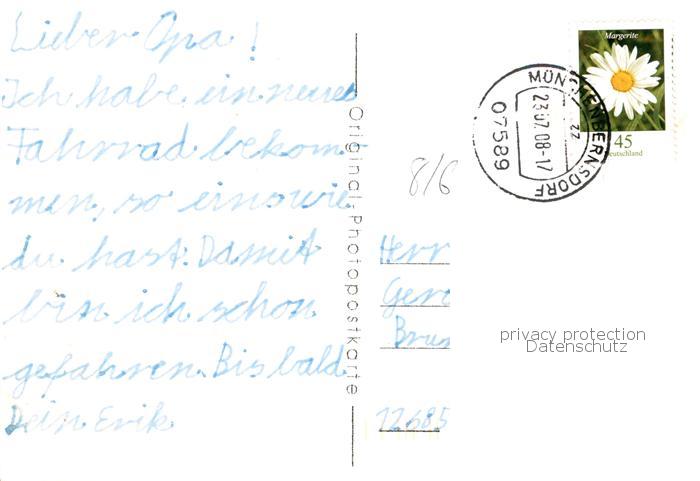 Lieber Opa!
Ich habe ein neues
Fahrrad bekom-
men, so eins wie
du hast. Damit
bin ich schon
gefahren. Bis bald
Dein Erik
Original-Photopostkarte
8/6
Margerite
45
Deutschland
MÜNCHENBERNSDORF
23.07.08-17
zz
07589
Herr
Ger
Bru
12685
privacy protection
Datenschutz